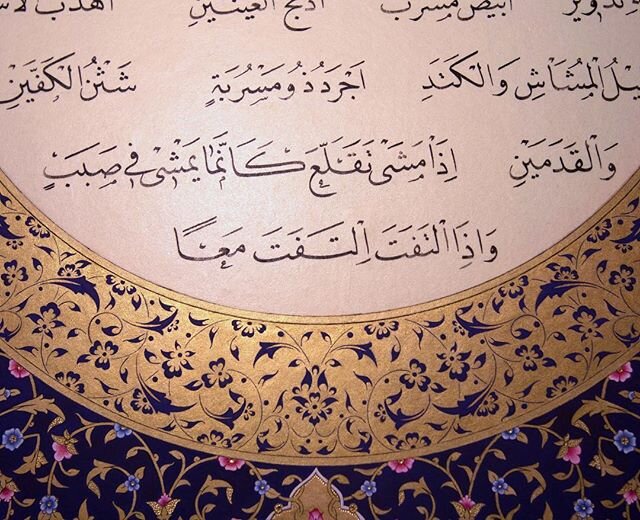 تدوير ابيض مشرب ادعج العينين اهدب
الْمُشَاشِ وَالْكَتَدِ اَجْرَدُ ذُو مَسْرُبَةٍ شَثْنُ الْكَفَّيْنِ
وَالْقَدَمَيْنِ اِذَا مَشَى تَقَلَّعَ كَاَنَّمَا يَمْشِى فِى صَبَبٍ
وَاِذَا الْتَفَتَ اِلْتَفَتَ مَعًا